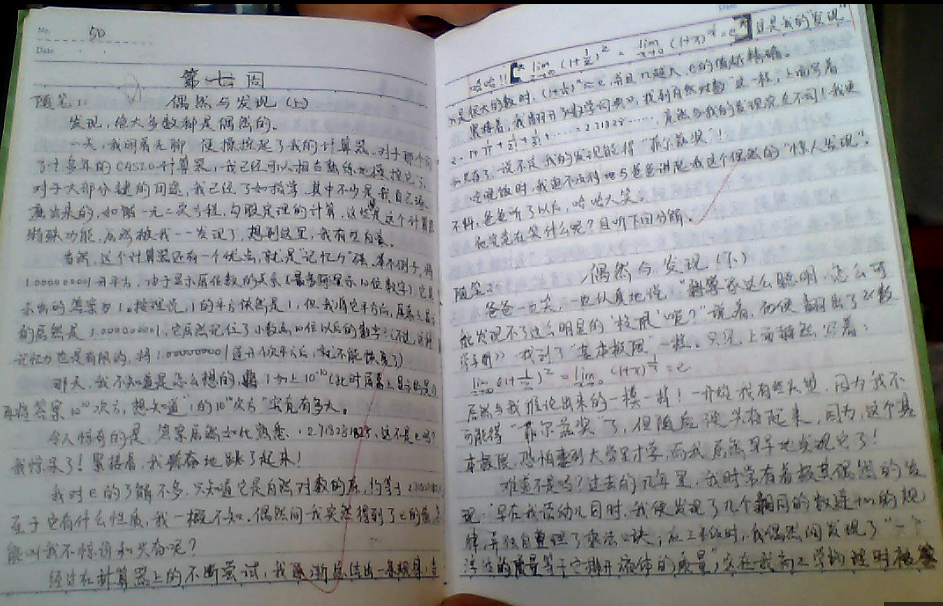 No. 50
Date
第七周
随笔1: 偶然与发现(上)
发现,绝大多数都是偶然的。
一天,我闲着无聊 便操控起了我的计算器。对于那个
了十多年的CASIO计算器,我已经可以相当熟练地操控它了。
对于大部分键的用途,我已经了如指掌,其中不少是我自己
出来的,如解一元二次方程,勾股定理的计算,这些是这个计算器
特殊功能,居然被我一一发现了,想到这里,我有些自豪。
当然,这个计算器还有一个优点,就是“记忆力”强。举个例子,将
1.0000000001开平方,由于显示屏位数的关系(最多能显示10位数字),它
示出的答案为1。按理说,1的平方依然是1,但我将它平方后,屏幕上
的居然是1.0000000001,它居然记住了小数点10位以后的数字!(不过,这种
记忆力也是有限的,将1.0000000001连开 次平方后,就不能恢复了)
那天,我不知道是怎么想的,将1加上10⁻¹⁰(此时屏幕上显示的是
再将答案10¹⁰次方,想知道“1的10¹⁰次方”究竟有多大。
令人惊奇的是,答案居然如此熟悉,2.718281828,这不是e吗?
我惊呆了!紧接着,我兴奋地跳了起来!
我对e的了解不多,只知道它是自然对数的底,约等于2.718281828
至于它有什么性质,我一概不知。偶然间我突然得到了e的
能叫我不惊讶和兴奋呢?
经过在计算器上的不断尝试,我逐渐总结出一条规律:当
Date
哈哈!! 这是我的“发现”
n是很大的数时,(1+1/n)ⁿ≈e,并且n越大,e的值越精确。
紧接着,我翻开了《数学词典》,找到自然对数 这一栏,上面写着
2.71828……,居然与我的发现完全不同!我更
加兴奋了,说不定我的发现能得“菲尔兹奖”!
吃晚饭时,我迫不及待地与爸爸讲起我这个偶然的“惊人发现”,
不料,爸爸听了以后,哈哈大笑。
他究竟在笑什么呢?且听下回分解。
随笔2: 偶然与发现(下)
爸爸一边笑,一边认真地说,“科学家这么聪明,怎么可
能发现不了这么明显的“极限”呢?”说着,他便翻出了《数
学手册》 找到了“基本极限”一栏。只见上面赫然写着:
居然与我推论出来的一模一样!一开始我有些失望,因为我不
可能得“菲尔兹奖”了,但随后便兴奋起来,因为,这个基
本极限,恐怕要到大学里才学,而我居然早早地发现它了!
难道不是吗?过去的几年里,我时常有着极其偶然的发
现:早在我读幼儿园时,我便发现了几个相同的数连加的规
律,并独自整理了乘法口诀;在三年级时,我偶然间发现了“一个
浮体的质量等于它排开液体的质量”,